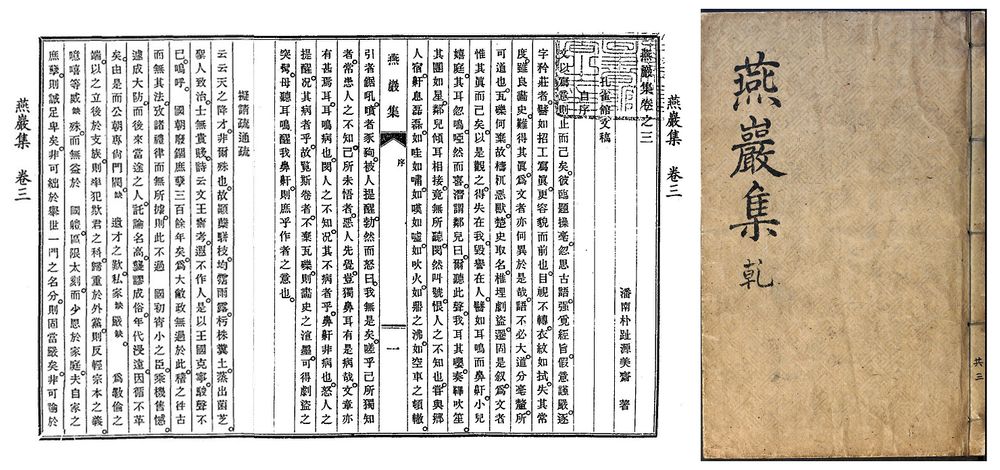 燕巖集 卷三
燕巖集卷之三
潘南朴趾源美齋 著
孔雀館文稿
自序
文以寫意則止而已矣。彼臨題操毫忽思古語强覓經旨假意謹嚴逐
字矜莊者譬如招工寫眞更容貌而前也目視不轉衣紋如拭失其常
度雖良畵史難得其眞爲文者亦何異於是哉語不必大道分毫釐所
可道也瓦礫何棄故檮杌惡獸楚史取名椎埋劇盜遷固是叙爲文者
惟其眞而已矣以是觀之得失在我毁譽在人譬如耳鳴而鼻鼾小兒
嬉庭其耳忽鳴啞然而喜潛謂鄰兒曰爾聽此聲我耳其嚶奏鞸吹笙
其團如星鄰兒傾耳相接竟無所聽閔然叫號恨人之不知也嘗與鄕
人宿鼾息磊磊如哇如嘯如嘆如噓如吹火如鼎之沸如空車之頓轍
燕巖集 序 一
引者鋸吼噴者豕豞被人提醒勃然而怒曰我無是矣嗟乎己所獨知
者常患人之不知己所未悟者惡人先覺豈獨鼻耳有是病哉文章亦
有甚焉耳耳鳴病也閔人之不知况其不病者乎鼻鼾非病也怒人之
提醒况其病者乎故覽斯卷者不棄瓦礫則畵史之渲墨可得劇盜之
突鬢毋聽耳鳴醒我鼻鼾則庶乎作者之意也
擬請疏通疏
云云天之降才非爾殊也故顚蘖騈枝均霑雨露朽株糞土蒸出菌芝
聖人致治士無貴賤詩云文王壽考遐不作人是以王國克寧駿聲不
已嗚呼 國朝廢錮庶孼三百餘年矣爲大敝政無過於此稽之往古
而無其法攷諸禮律而無所據則此不過 國初宵小之臣乘機售憾
遽成大防而後來當途之人託論名高襲謬成俗年代浸遠因循不革
矣由是而公朝專尙門閥缺 遺才之歎私家缺嚴缺 爲斁倫之
端以之立後於支族則率犯欺君之科歸重於外黨則反輕宗本之義
噫嘻等威缺殊而無益於 國體區限太刻而少恩於家庭夫自家之
庶孼則誠足卑矣非可絀於擧世一門之名分則固當嚴矣非可論於
燕巖集 卷三
燕巖集 乾
共三